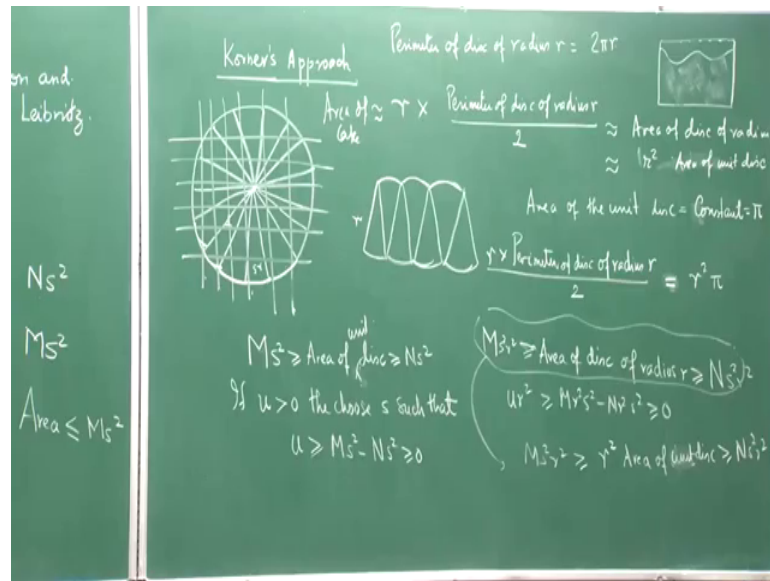 on and
Leibnitz.
Ns²
Ms²
Area ≤ Ms²
Korner's Approach
Perimeter of disc of radius r = 2πr
Area of Cake ≈ r × Perimeter of disc of radius r / 2
≈ Area of disc of radius
≈ r² Area of unit disc
r
sr
Area of the unit disc = Constant = π
r × Perimeter of disc of radius r / 2 = r² π
Ms² ≥ Area of unit disc ≥ Ns²
If u > 0 the choose s such that
u ≥ Ms² - Ns² ≥ 0
Ms²r² ≥ Area of disc of radius r ≥ Ns²r²
ur² ≥ Mr²s² - Nr²s² ≥ 0
Ms²r² ≥ r² Area of unit disc ≥ Ns²r²